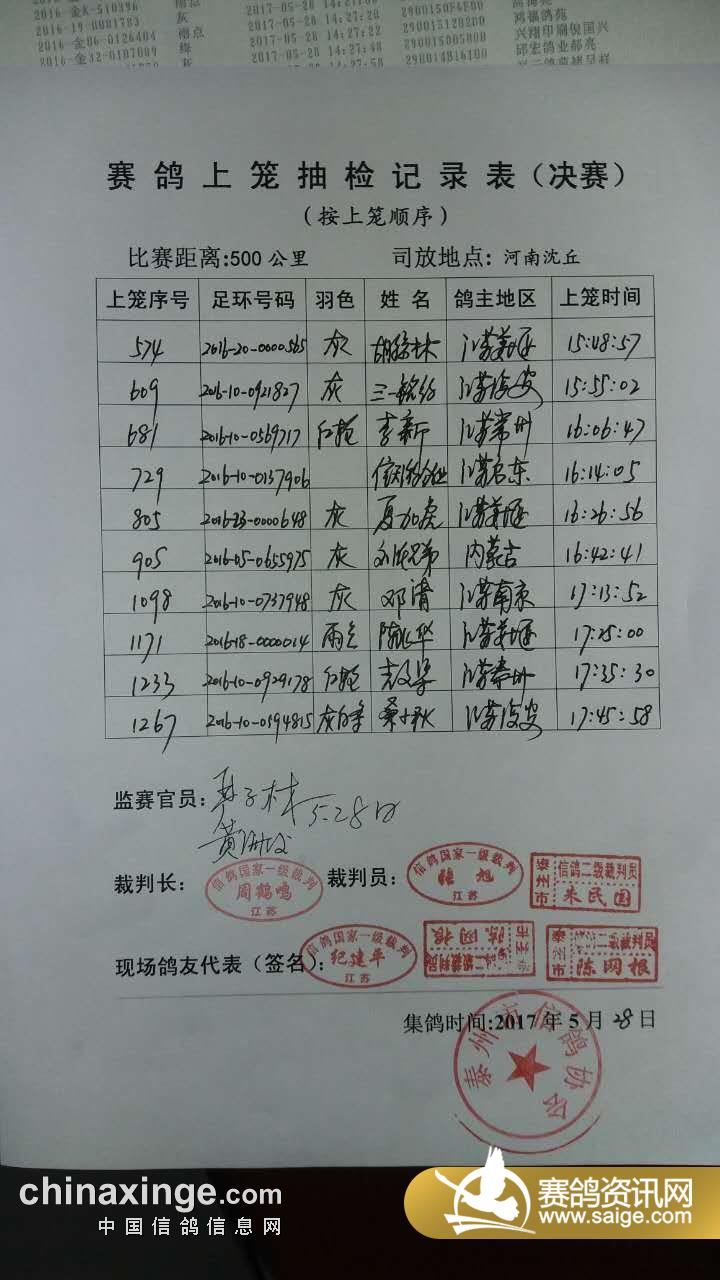 2016-金K-510396 雨点 2017-05-28 14:27:20 290015DF6E00
2016-19-0001783 灰 2017-05-28 14:27:28 290015120200 鸿福鸽苑
2016-金06-0126404 雨点 2017-05-28 14:27:48 290015005800 兴翔印刷倪国兴
2016-金32-0107009 绛 2017-05-28 14:27:58 290014B16100 邱宏鸽业郝亮
赛鸽上笼抽检记录表（决赛）
（按上笼顺序）
比赛距离:500公里 司放地点: 河南沈丘
上笼序号 足环号码 羽色 姓名 鸽主地区 上笼时间
574 2016-20-0000565 灰 江苏姜堰 15:48:57
609 2016-10-0921827 灰 江苏淮安 15:55:02
681 2016-10-0569717 红轮 李新 江苏常州 16:06:47
729 2016-10-0137906 江苏启东 16:14:05
805 2016-23-0000648 灰 夏加虎 江苏姜堰 16:26:56
905 2016-05-0655975 灰 内蒙古 16:42:41
1098 2016-10-0737948 灰 邓清 江苏南京 17:13:52
1171 2016-18-0000014 雨点 江苏姜堰 17:25:00
1233 2016-10-0929178 红轮 江苏常州 17:35:30
1267 2016-10-0594815 灰白条 桑小秋 江苏淮安 17:45:58
监赛官员: 5.28日
裁判长: 信鸽国家一级裁判 周鹤鸣 江苏 裁判员: 信鸽国家一级裁判 张旭 江苏 泰州市 信鸽二级裁判员 朱民国
现场鸽友代表（签名）: 信鸽国家一级裁判 纪建平 江苏 泰州市 二级裁判员 陈网根 泰州市 二级裁判员 陈网根
集鸽时间:2017年5月28日
泰州市信鸽协会
chinaxinge.com
中国信鸽信息网
赛鸽资讯网
www.saige.com